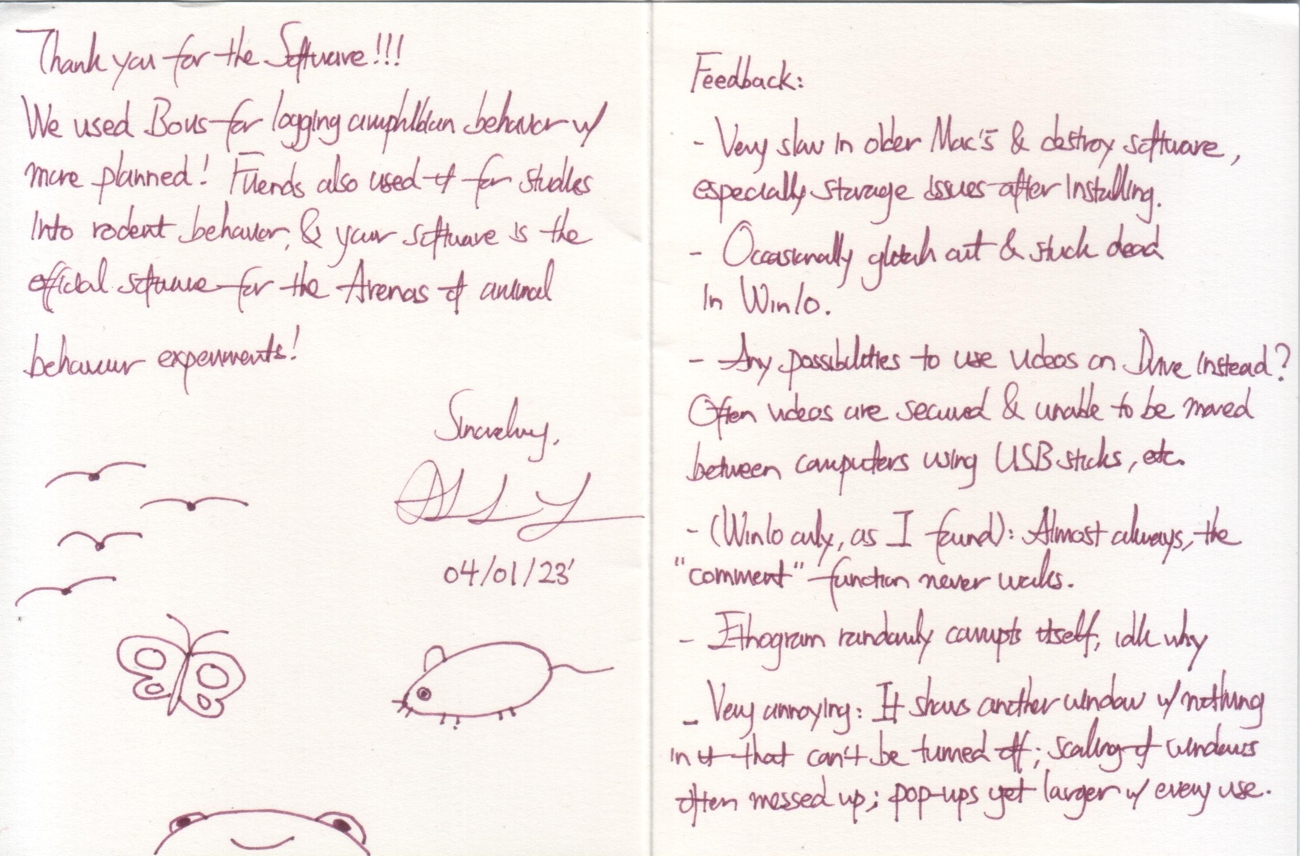 Thank you for the Software!!!
We used Boris for logging amphibian behavior w/
more planned! Friends also used it for studies
into rodent behavior, & your software is the
official software for the Arenas of animal
behaviour experiments!
Sincerely,
04/01/23'
Feedback:
- Very slow in older Mac's & destroy software,
especially storage issues after installing.
- Occasionally glitch out & stuck dead
in Win10.
- Any possibilities to use videos on Drive instead?
Often videos are secured & unable to be moved
between computers using USB sticks, etc.
- (Win10 only, as I found): Almost always, the
"comment" function never works.
- Ethogram randomly corrupts itself, idk why
- Very annoying: It shows another window w/ nothing
in it that can't be turned off; scaling of windows
often messed up; pop-ups get larger w/ every use.